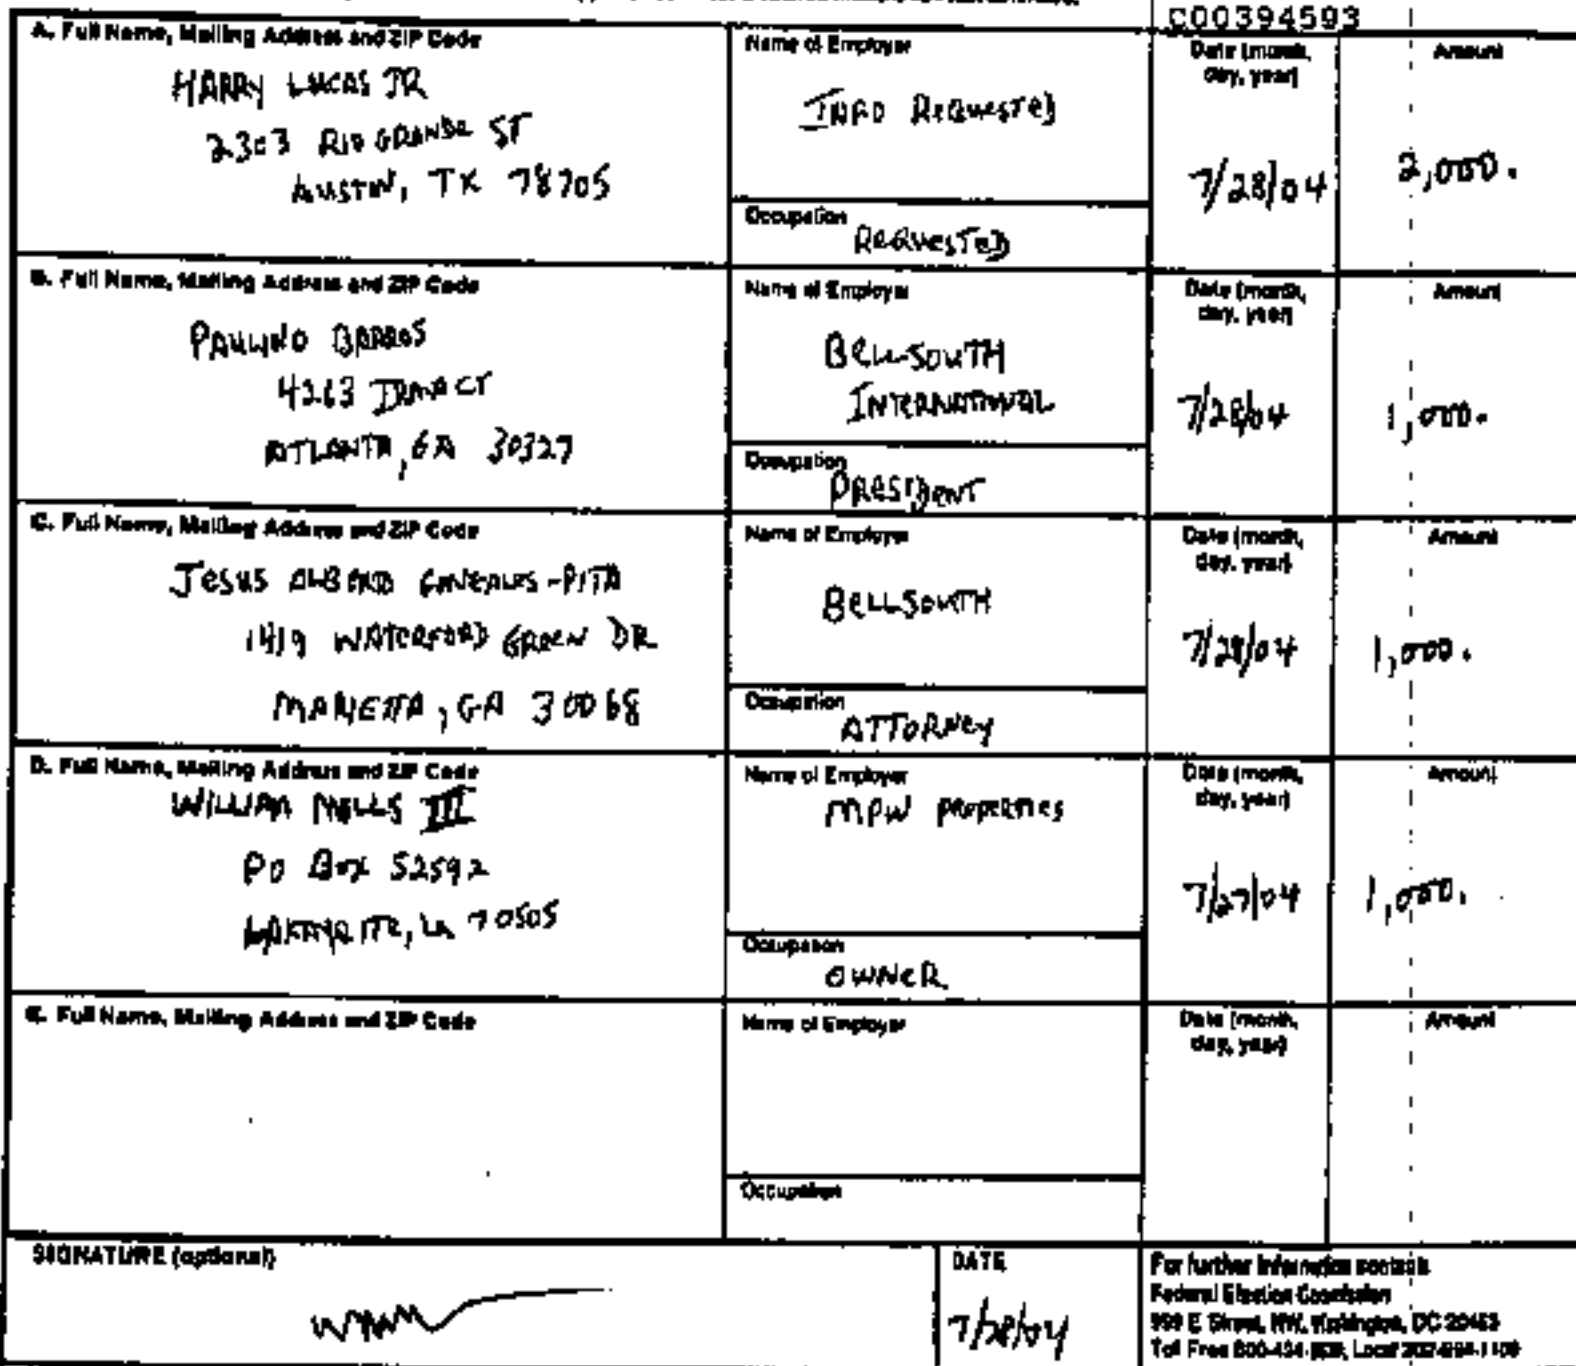 C00394593
A. Full Name, Mailing Address and ZIP Code
HARRY LUCAS JR
2303 RIO GRANDE ST
AUSTIN, TX 78705
Name of Employer
INFO REQUESTED
Occupation
REQUESTED
Date (month, day, year)
7/28/04
Amount
2,000.
B. Full Name, Mailing Address and ZIP Code
PAULINO BARROS
4263 CT
ATLANTA, GA 30327
Name of Employer
BELLSOUTH
INTERNATIONAL
Occupation
PRESIDENT
Date (month, day, year)
7/28/04
Amount
1,000.
C. Full Name, Mailing Address and ZIP Code
JESUS -PITA
1419 WATERFORD GREEN DR
MARIETTA, GA 30068
Name of Employer
BELLSOUTH
Occupation
ATTORNEY
Date (month, day, year)
7/28/04
Amount
1,000.
D. Full Name, Mailing Address and ZIP Code
WILLIAM MILLS III
PO BOX 52592
LAFAYETTE, LA 70505
Name of Employer
MPW PROPERTIES
Occupation
OWNER
Date (month, day, year)
7/27/04
Amount
1,000.
E. Full Name, Mailing Address and ZIP Code
Name of Employer
Occupation
Date (month, day, year)
Amount
SIGNATURE (optional)
DATE
7/28/04
For further information contact:
Federal Election Commission
999 E Street, NW, Washington, DC 20463
Toll Free 800-424- Local 202-694-1100